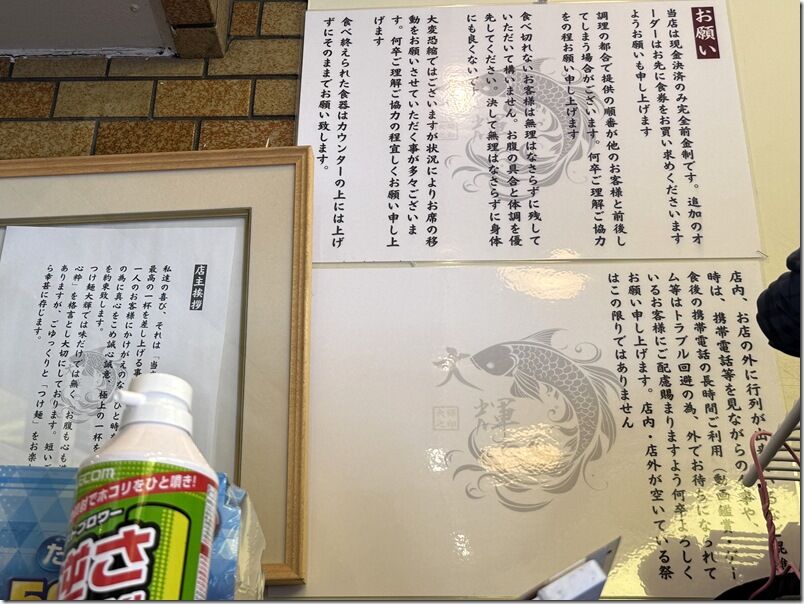 お願い
当店は現金決済のみ完全前金制です。追加のオ
ーダーはお先に食券をお買い求めくださいます
ようお願いも申し上げます
調理の都合で提供の順番が他のお客様と前後し
てしまう場合がございます。何卒ご理解ご協力
をの程お願い申し上げます
食べ切れないお客様は無理はなさらずに残して
いただいて構いません。お腹の具合と体調を優
先してください。決して無理はなさらずに身体
にも良くない
大変恐縮ではございますが状況によりお席の移
動をお願いさせていただく事が多々ございま
す。何卒ご理解ご協力の程宜しくお願い申し上
げます
食べ終えられた食器はカウンターの上には上げ
ずにそのままでお願い致します。
店内、お店の外に行列が出
時は、携帯電話等を見ながらの
食後の携帯電話の長時間ご利用（動画鑑賞・
ム等はトラブル回避の為、外でお待ちになられて
いるお客様にご配慮賜りますよう何卒よろしく
お願い申し上げます。店内・店外が空いている祭
はこの限りではありません
大輝
店主挨拶
私達の喜び、それは「当
最高の一杯を差し上げる事
一人のお客様にかけがえのな ひと時
の為に真心をこめ誠心誠意、極上の一杯を
を約束致します。
つけ麺大輝では味だけでは無く お腹も心も
心粋」を格言とし大切にしております。短い
ありますが、ごゆっくりと「つけ麺」をお楽
ら幸甚に存じます。
ECOM
でホコリをひと噴き!
ブロワー